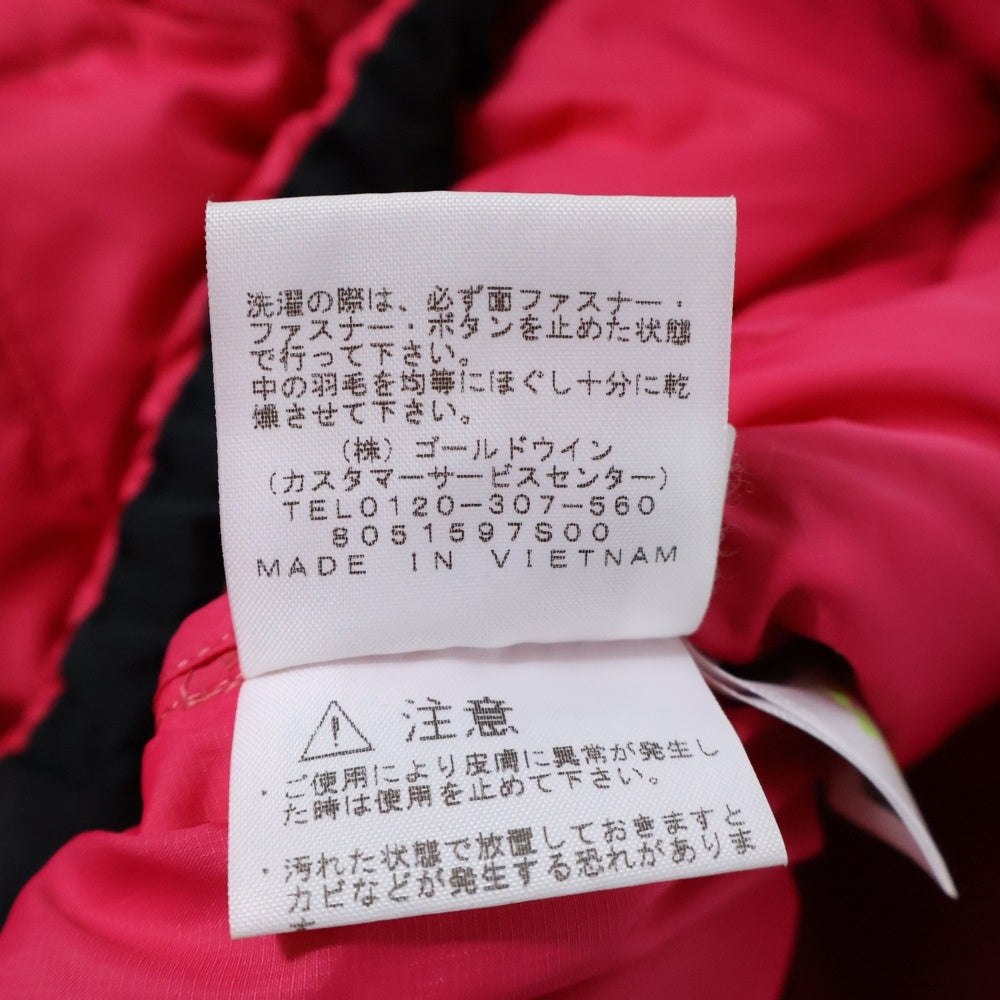 洗濯の際は、必ず面ファスナー・
ファスナー・ボタンを止めた状態
で行って下さい。
中の羽毛を均等にほぐし十分に乾
燥させて下さい。
(株)ゴールドウイン
(カスタマーサービスセンター)
TEL0120-307-560
8051597S00
MADE IN VIETNAM
注意
・ご使用により皮膚に異常が発生し
た時は使用を止めて下さい。
・汚れた状態で放置しておきますと
カビなどが発生する恐れがありま